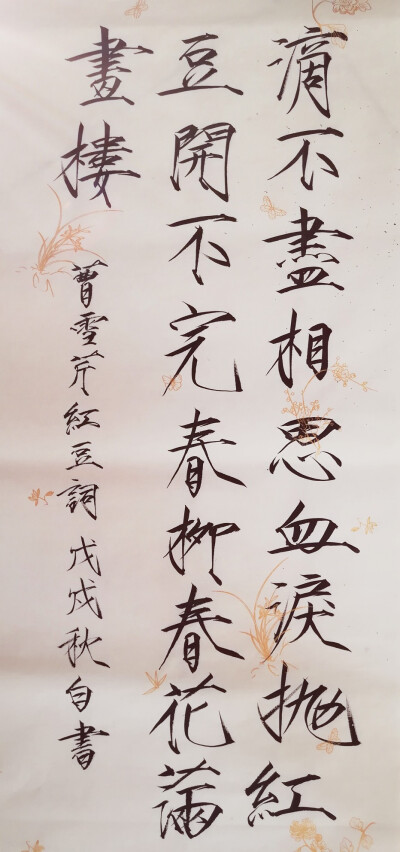 滴不盡相思血淚抛紅
豆開不完春柳春花滿
畫樓
曹雪芹紅豆詞 戊戌秋白書